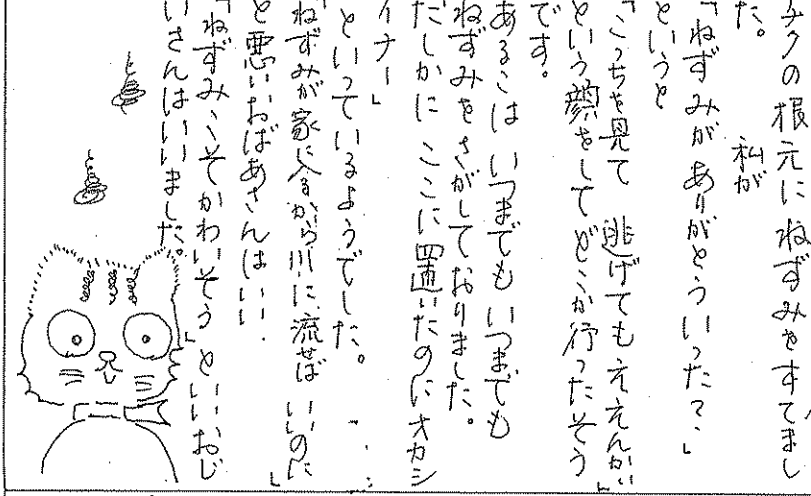 チクの根元にねずみをすてまし
た。　私が
「ねずみがありがとういった？」
というと
「こっちを見て 逃げてもええんかい」
という顔をしてどこか行ったそう
です。
あるこは いつまでも いつまでも
ねずみをさがしておりました。
だしかに ここに置いたのにオカシ
イナー」
といっているようでした。
「ねずみが家に入るから川に流せば いいのに」
と悪いおばあさんはいい.
「ねずみこそかわいそう」といいおじ
いさんはいいました。